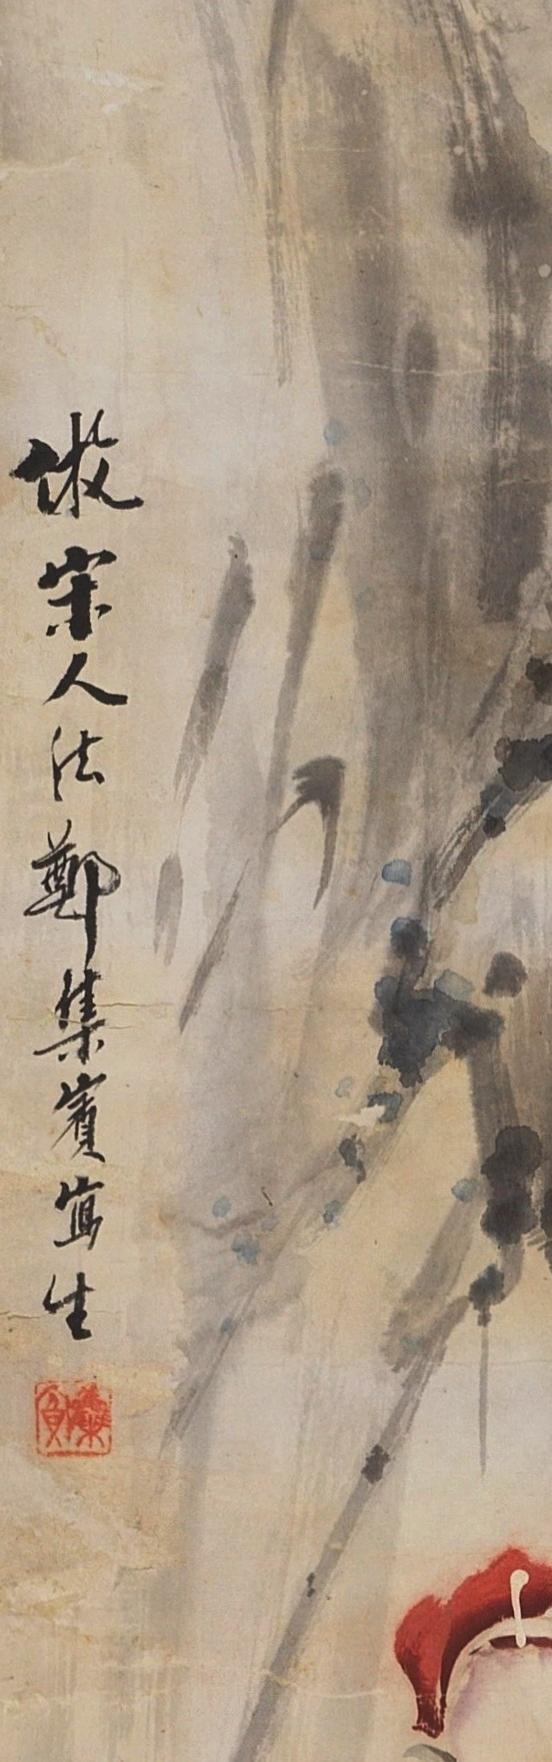 倣宋人法鄭集賓寫生